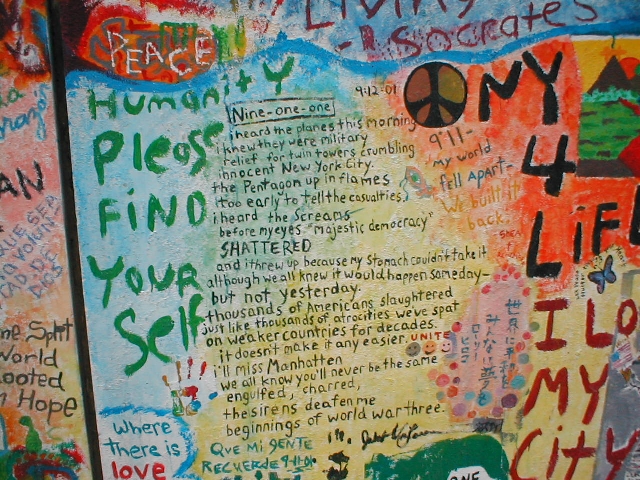 LIVING
-Socrates
PEACE
Humanity
Please
FIND
YOUR
Self
Nine-one-one
9-12-01
i heard the planes this morning
i knew they were military
relief for twin towers crumbling
innocent New York City.
the Pentagon up in flames
(too early to tell the casualties,)
i heard the screams
before my eyes "majestic democracy"
SHATTERED
and i threw up because my stomach couldn't take it
although we all knew it would happen someday—
but not yesterday.
thousands of Americans slaughtered
just like thousands of atrocities we've spat
on weaker countries for decades.
it doesn't make it any easier.
i'll miss Manhatten
we all know you'll never be the same
engulfed, charred,
the sirens deafen me
beginnings of world war three.
NY
4
LIFE
9-11-
my world
fell Apart-
We built it
back.
UNITE
I LO
MY
CITY
世界に平和を
みんなに夢を
Where
there is
love
QUE Mi GENTE
RECUERDE 9-11-01
ONE
AN
Split
World
ooted
Hope